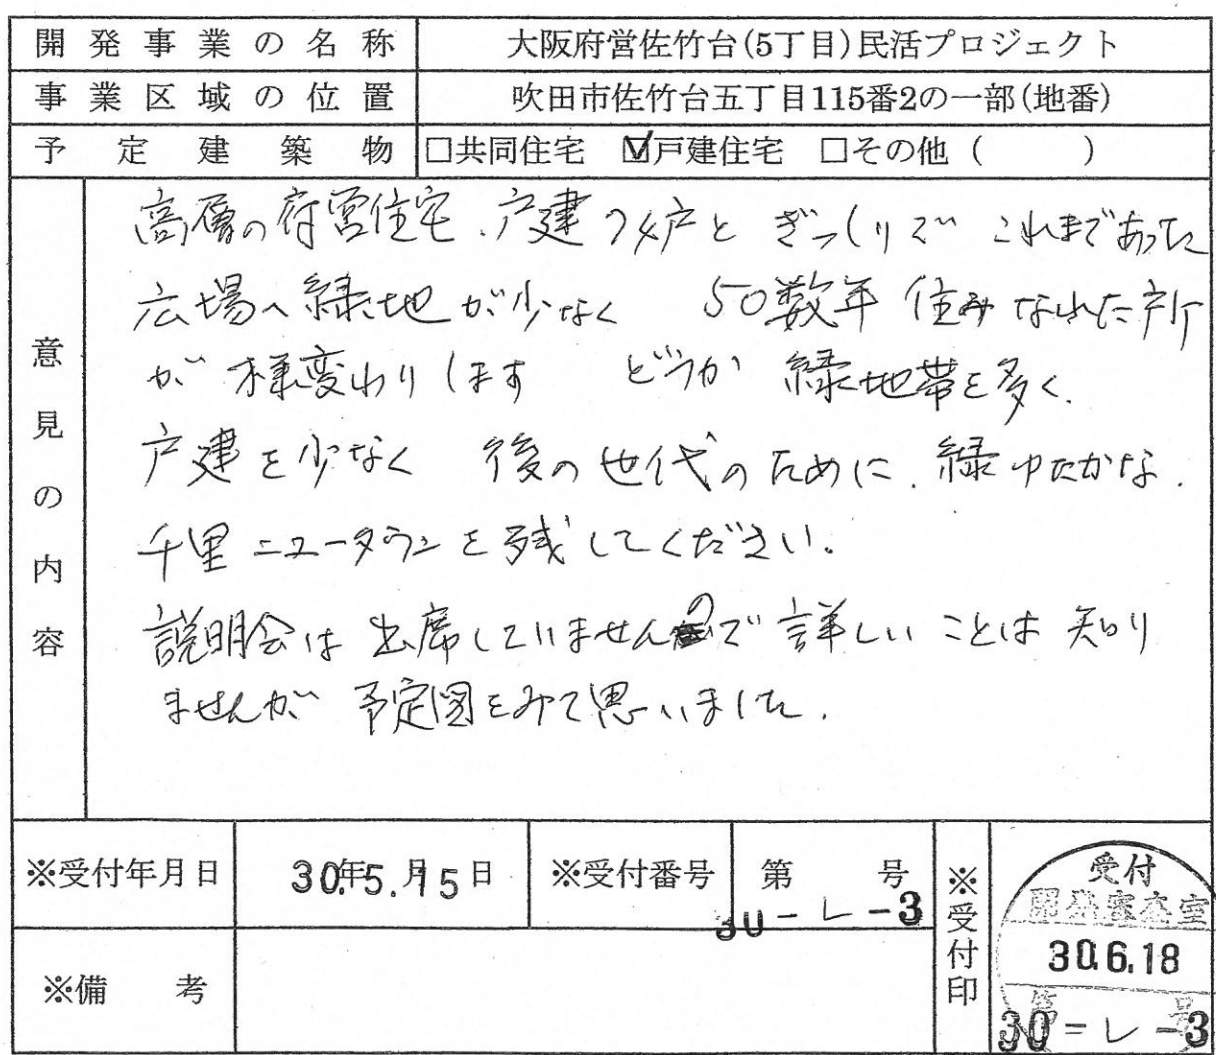 開発事業の名称 大阪府営佐竹台(5丁目)民活プロジェクト
事業区域の位置 吹田市佐竹台五丁目115番2の一部(地番)
予定建築物 □共同住宅 ☑戸建住宅 □その他( )
意見の内容
高層の府営住宅、戸建 戸と ぎっしりで これまであった
広場へ緑地が少なく 50数年 住みなれた所
が 様変わりします どうか 緑地帯を多く、
戸建を少なく 後の世代のために、緑ゆたかな、
千里ニュータウンを残してください。
説明会は出席していませんので詳しいことは知り
ませんが 予定図をみて思いました。
※受付年月日 30年5.月15日 ※受付番号 第 号
30-レ-3
※備考
※受付印
受付
開発審査室
30.6.18
第 号
30=レ-3